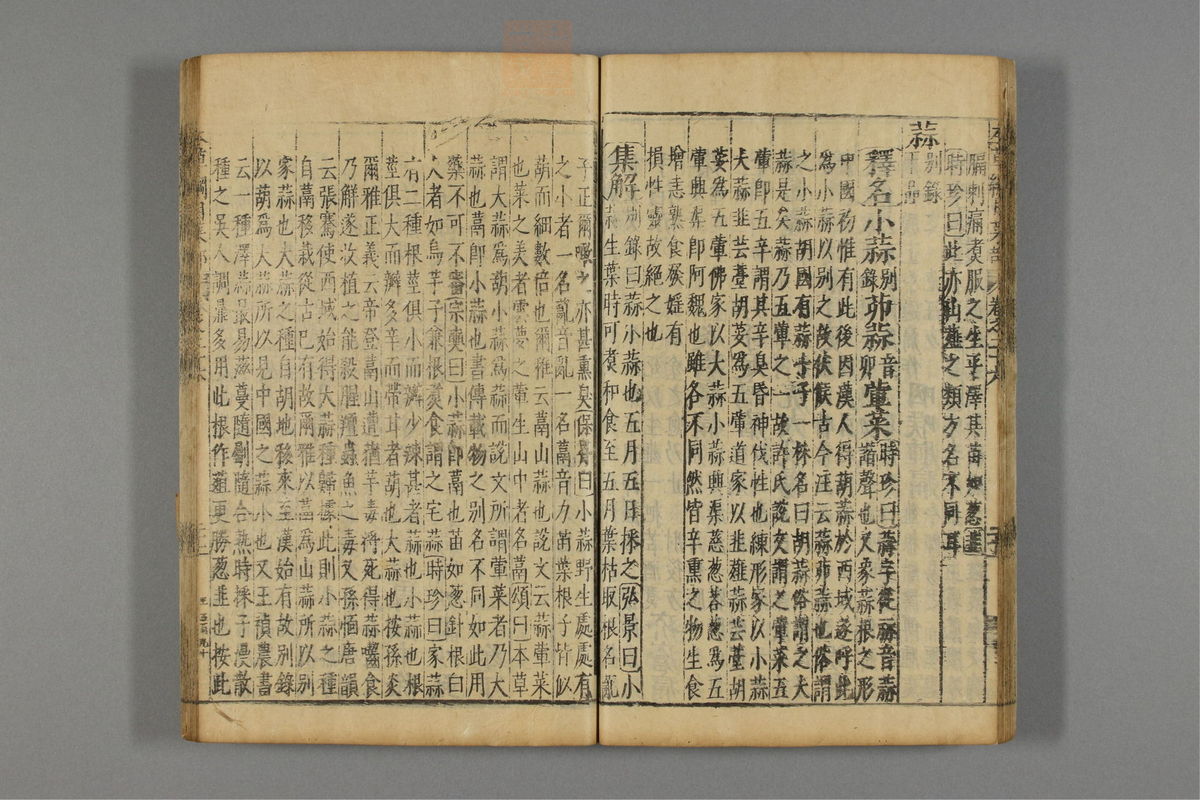 膈刺痛煮服之生平澤其苗如葱韭
時珍曰此亦山薤之類方名不同耳
蒜
別錄
下品
釋名小蒜別錄茆蒜音卯葷菜時珍曰蒜字從祘音蒜
諧聲也又象蒜根之形
中國初惟有此後因漢人得葫蒜於西域遂呼此
為小蒜以別之故伏候古今注云蒜茆蒜也俗謂
之小蒜胡國有蒜十子一株名曰胡蒜俗謂之大
蒜是矣蒜乃五葷之一故許氏說文謂之葷菜五
葷即五辛謂其辛臭昏神伐性也練形家以小蒜
大蒜韭芸薹胡荽為五葷道家以韭薤蒜芸薹胡
荽為五葷佛家以大蒜小蒜興渠慈葱茖葱為五
葷興渠即阿魏也雖各不同然皆辛熏之物生食
增恚熟食發婬有
損性靈故絕之也
集解別錄曰蒜小蒜也五月五日採之弘景曰小
蒜生葉時可煮和食至五月葉枯取根名薍
子正爾噉之亦甚熏臭保昇曰小蒜野生處處有
之小者一名薍音亂一名蒚音力苗葉根子皆似
葫而細數倍也爾雅云蒚山蒜也說文云蒜葷菜
也菜之美者雲夢之葷生山中者名蒚頌曰本草
謂大蒜為葫小蒜為蒜而說文所謂葷菜者乃大
蒜也蒚即小蒜也書傳載物之別名不同如此用
藥不可不審宗奭曰小蒜即蒚也苗如葱針根白
大者如烏芋子兼根煮食謂之宅蒜時珍曰家蒜
有二種根莖俱小而瓣少辣甚者蒜也小蒜也根
莖俱大而瓣多辛而帶甘者葫也大蒜也按孫炎
爾雅正義云帝登蒚山遭莸芋毒將死得蒜囓食
乃解遂收植之能殺腥羶蟲魚之毒又孫愐唐韻
云張騫使西域始得大蒜種歸據此則小蒜之種
自蒚移栽從古已有故爾雅以蒚為山蒜所以別
家蒜也大蒜之種自胡地移來至漢始有故別錄
以葫為大蒜所以見中國之蒜小也又王禎農書
云一種澤蒜最易滋蔓隨劚隨合熟時採子漫散
種之吳人調鼎多用此根作葅更勝葱韭也按此